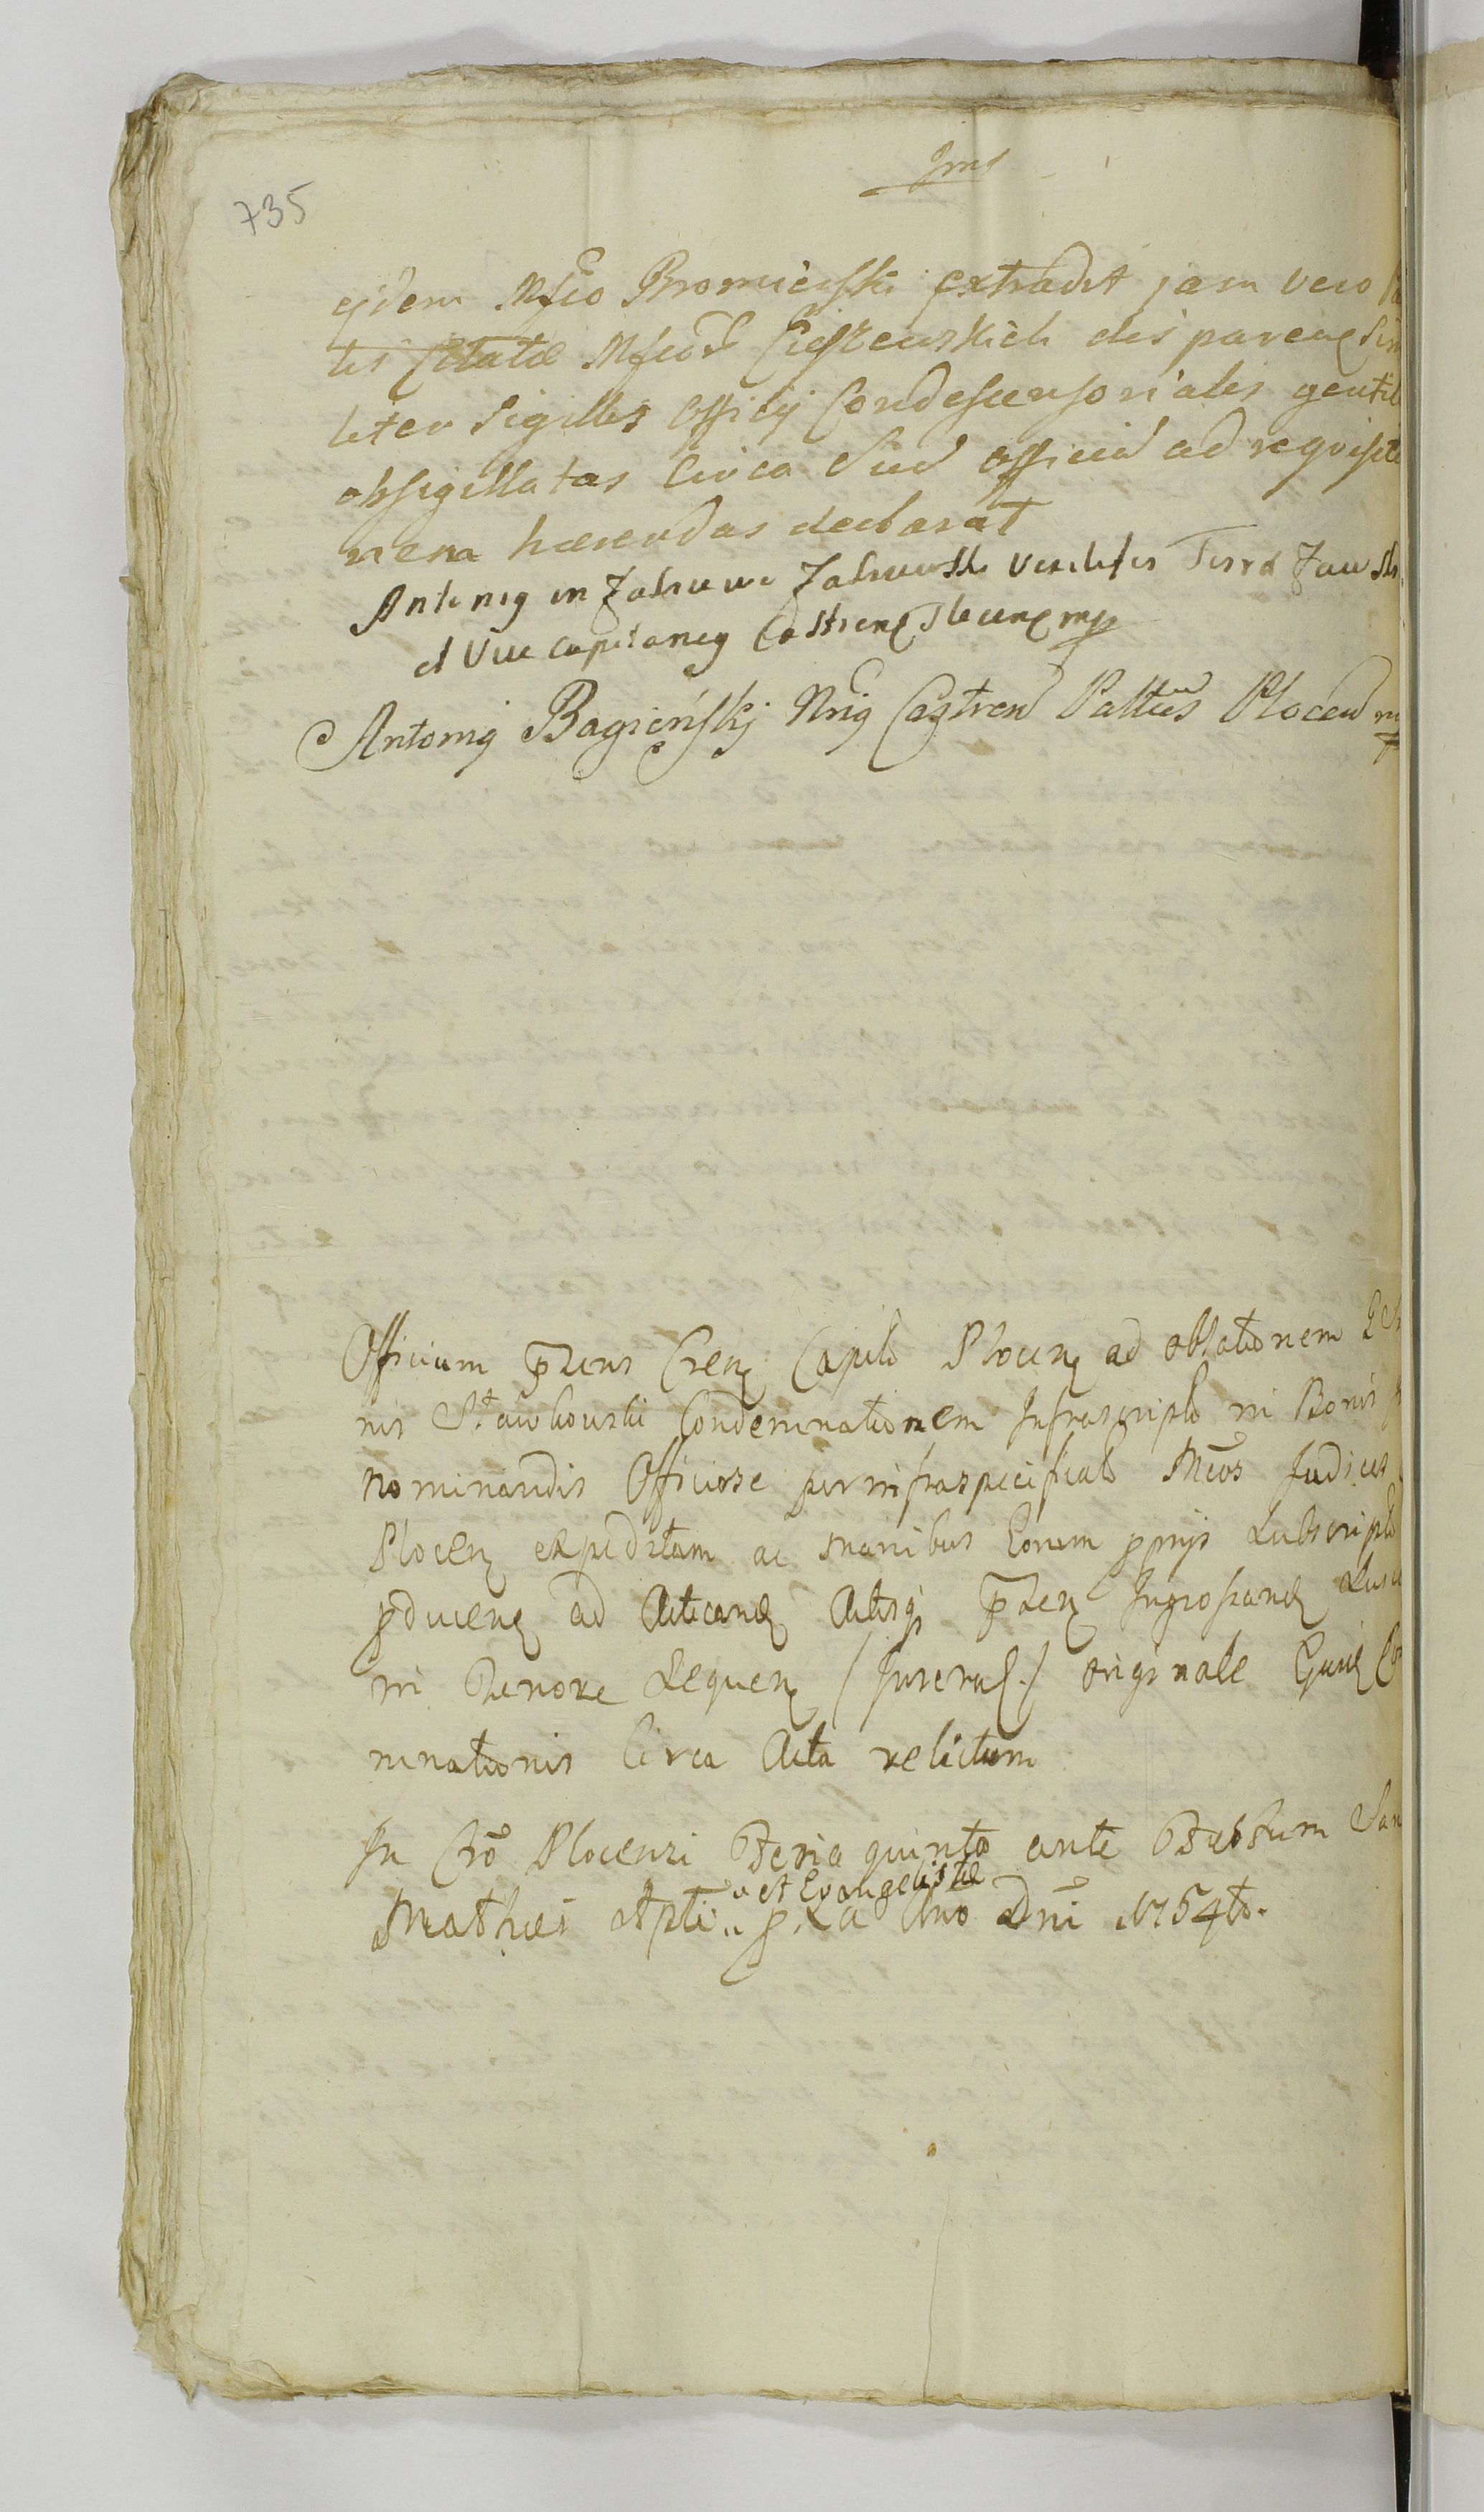 Jms
735
ejdem Mfco Bromierski extradit jam vero
tis Citatae Mficor Ciszewskich disparen
liter Sigillis Officij Condescensoriales gentil
obsigillatas Circa Suu Officiu ad requisitio
nem haerendas declarat
Antonig in Zakrzewo Zakrzewski Vexilifer Terrae Zaw
et Vice Capitaneg Castren Plocen mp
Antonig Bagieńskj Nrig Castren Pallus Plocen
Officium pzens Cren Capitl Plocen ad oblationem
nis Stawkowski Condemnationem Infrascripto in Bonis
nominandis Officiose per infraspecificato Mcos Judices
Plocen expeditam ac manibus Eorum pprijs Subscripto
pducen ad Acticand Actisq pzen Ingrossand Susce
in Tenore Sequen (Inserat.) originale Ejusd
mnationis Circa Acta relictum
In Cro Plocensi Feria quinta ante Festum San
Mathaei Apli " et Evangelistae pxa Ano Dni 1754to.